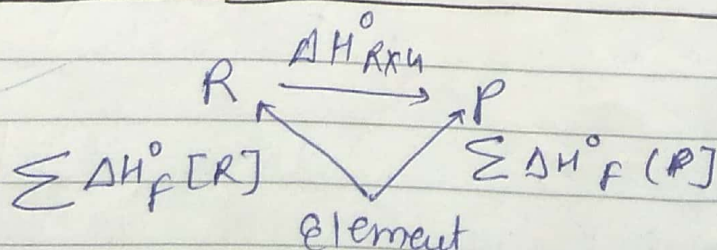 ΔH°Rxn
R → P
Σ ΔH°f [R] Σ ΔH°f (P]
Element